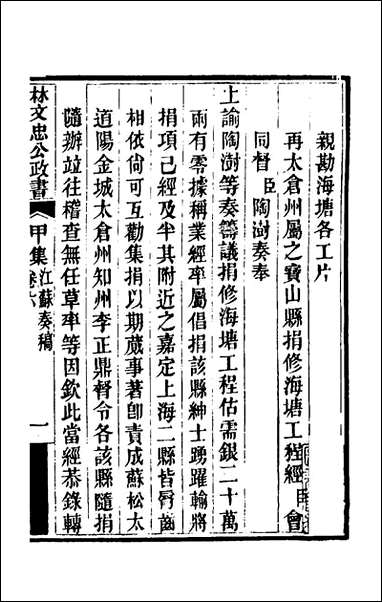 親勘海塘各工片
再太倉州屬之寶山縣捐修海塘工程經臣會
同督臣陶澍奏奉
上諭陶澍等奏籌議捐修海塘工程估需銀二十萬
兩有零據稱業經率屬倡捐該縣紳士踴躍輸將
捐項已經及半其附近之嘉定上海二縣皆脣齒
相依尚可互勸集捐以期蕆事著卽責成蘇松太
道陽金城太倉州知州李正鼎督令各該縣隨捐
隨辦竝往稽查無任草率等因欽此當經恭錄轉
林文忠公政書
甲集
江蘇奏稿
卷六
一